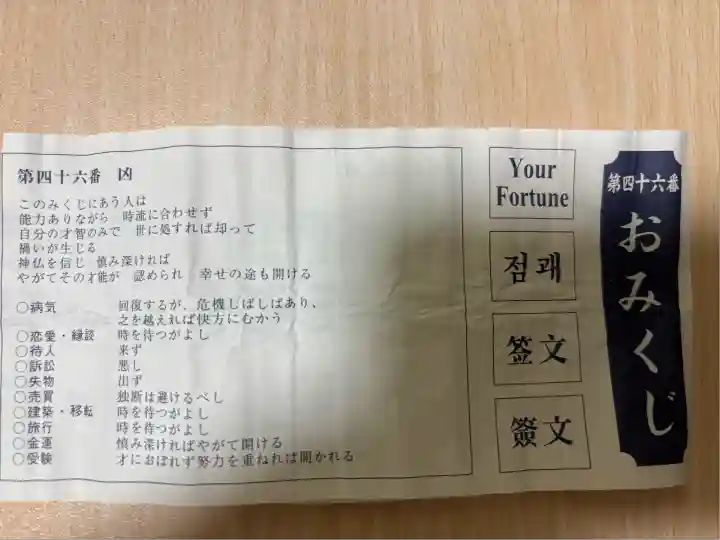 第四十六番 凶
このみくじにあう人は
能力ありながら 時流に合わせず
自分の才智のみで 世に処すれば却って
禍いが生じる
神仏を信じ 慎み深ければ
やがてその才能が 認められ 幸せの途も開ける
○病気 回復するが、危機しばしばあり、
之を越えれば快方にむかう
○恋愛・縁談 時を待つがよし
○待人 来ず
○訴訟 悪し
○失物 出ず
○売買 独断は避けるべし
○建築・移転 時を待つがよし
○旅行 時を待つがよし
○金運 慎み深ければやがて開ける
○受験 才におぼれず努力を重ねれば開かれる
Your
Fortune
점괘
签文
簽文
第四十六番
おみくじ